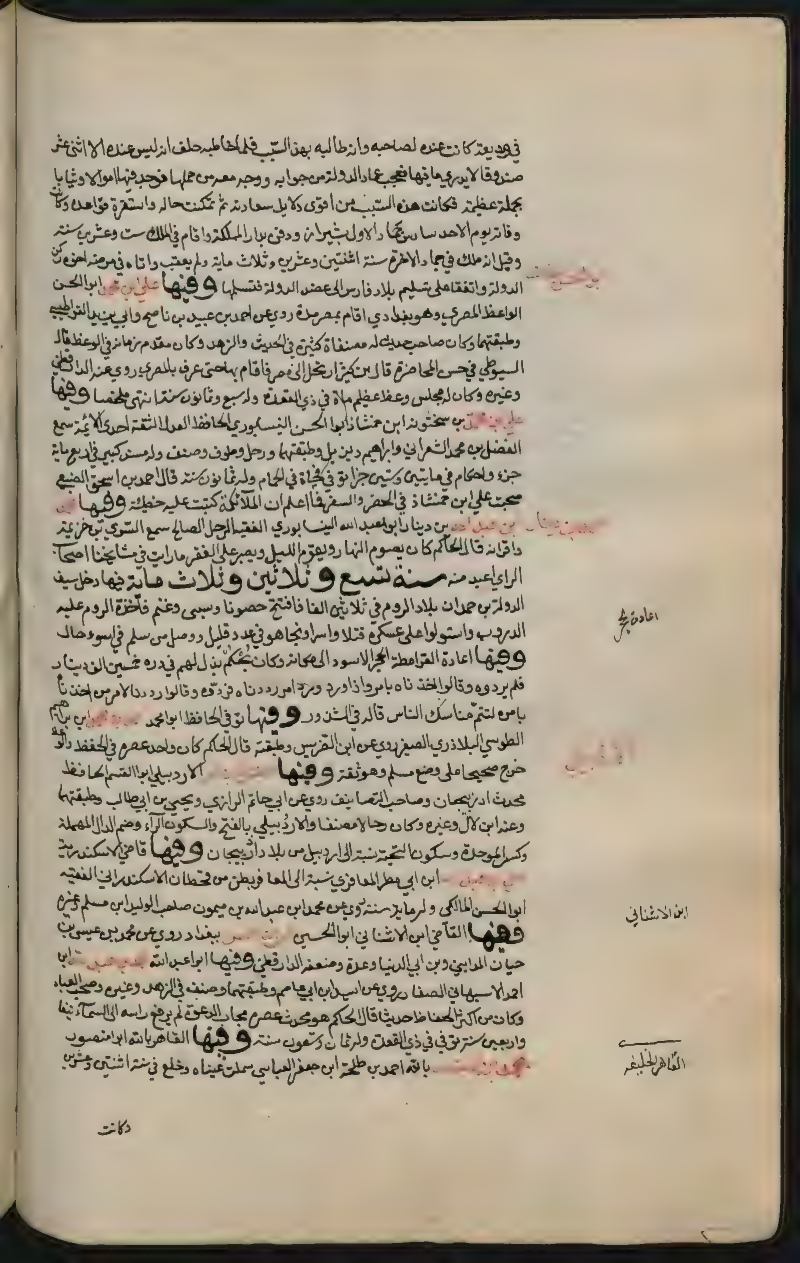 في وديعة كانت عنده لصاحبه وانه طالبه بهذا السبب فلما خاطبه حلف انه ليس عنده الا اثنى عشر
صندوقا لا يدري ما فيها فعجب عماد الدولة من جوابه ووجه معه من حملها فوجد فيها اموالا وثيابا
بجملة عظيمة فكانت هذه السبب من اقوى دلايل سعادته ثم تمكنت حاله واستقرة قواعده وكانت
وفاته يوم الاحد سادس عشر جماد الاول بشيراز ودفن بدار المملكة واقام في الملك ست وعشرين سنة
وقيل انه ملك في جماد الاخرة سنة اثنتين وعشرين وثلاث ماية ولم يعقب واتاه في مرضه اخوه ركن
الدولة واتفقا على تسليم بلاد فارس الى عضد الدولة فتسلمها وفيها علي ابن محمد ابو الحسن
الواعظ المصري وهو بغدادي اقام بمصر مدة روى عن احمد بن عبيد بن ناصح وابي يزيد القراطيسي
وطبقتهما وكان صاحب حديث له مصنفاة كثيرة في الحديث والزهد وكان مقدم زمانه في الوعظ قاله
السيوطي في حسن المحاضرة قال بن كثير ارتحل الى مصر فاقام بها حتى عرف بالمصري روى عنه الدارقطني
وغيره وكان له مجلس وعظ عظيم مات في ذي القعدة وله سبع وثمانون سنة انتهى ملخصا وفيها
علي بن محمد بن سختونه ابن حمشاذ ابوا الحسن النيسابوري الحافظ العدل الثقة احدى الائمة سمع
الفضل بن محمد الشعراني وابراهيم ديزيل وطبقتهما ورحل وطوف وصنف وله مسند كبير في اربع ماية
جزء واحكام في مايتين وستين جزا توفي فجاة في الحمام وله ثمانون سنة قال احمد بن اسحق الضبعي
صحبت علي ابن حمشاذ في الحضر والسفر فما اعلم ان الملائكة كتبت عليه خطيئة وفيها محمد
بن عبد الله بن دينار ابو عبد الله النيسابوري الفقيه الرجل الصالح سمع السري بن خزيمة
واقرانه قال الحاكم كان يصوم النهار ويقوم الليل ويصبر على الفقر ما رايت في مشايخنا اصحاب
الراي اعبد منه سنة تسع وثلاثين وثلاث ماية فيها دخل سيف
الدولة بن حمدان بلاد الروم في ثلاثين الفا فافتتح حصونا وسبى وغنم فاخذة الروم عليه
الدروب واستولوا على عسكره قتلا واسرا ونجا هو في عدد قليل ووصل من سلم في اسوء حال
وفيها اعادة القرامطة الحجر الاسود الى مكانه وكان بجكم بذل لهم في رده خمسين الف دينار
فلم يردوه وقالوا اخذناه بامر واذا ورد امر رددناه فردوه وقالوا رددنا الامر من اخذناه
بامره لتتم مناسك الناس قاله في الشذور وفيها توفي الحافظ ابو محمد ابن ابراهيم
الطوسي البلاذري الصغير روى عن ابن الضريس وطبقته قال الحاكم كان واحد عصره في الحفظ والوعظ
خرج صحيحا على وضع مسلم وهو ثقة وفيها الاردبيلي ابو القسم الحافظ
محدث اذربيجان وصاحب التصانيف روى عن ابي حاتم الرازي ويحيى بن ابي طالب وطبقتهما
وعنه ابن لال وغيره وكان رحالا مصنفا والاردبيلي بالفتح والسكون الراء وضم الدال المهملة
وكسر الموحدة وسكون التحتية نسبة الى اردبيل من بلاد اذربيجان وفيها قاضي الاسكندرية
ابن ابي مطر المعافري نسبة الى المعافر بطن من قحطان الاسكندراني الفقيه
ابو الحسن المالكي وله ماية سنة روى عن محمد ابن عبد الله بن ميمون صاحب الوليد ابن مسلم وغيره
وفيها القاضي ابن الاشناني ابو الحسين ببغداد روى عن محمد بن عيسى بن
حيان المدايني وبن ابي الدنيا وعدة وضعفه الدارقطني وفيها ابو عبد الله ابن
احمد الاصبهاني الصفار روى عن اسيد ابن ابي عاصم وطبقتهما وصنف في الزهد وغيره وصحب العباد
وكان من اكثر الحفاظ حديثا قال الحاكم هو محدث عصره مجاب الدعوة لم يرفع راسه الى السماء نيفا
واربعين سنة توفي في ذي القعدة وله ثمان وتسعون سنة وفيها القاهر بالله ابو منصور
بالله احمد بن طلحة ابن جعفر العباسي سملت عيناه وخلع في سنة اثنتين وعشرين
وكانت
اعادة حجر
ابن الاشناني
القاهر الخليفه